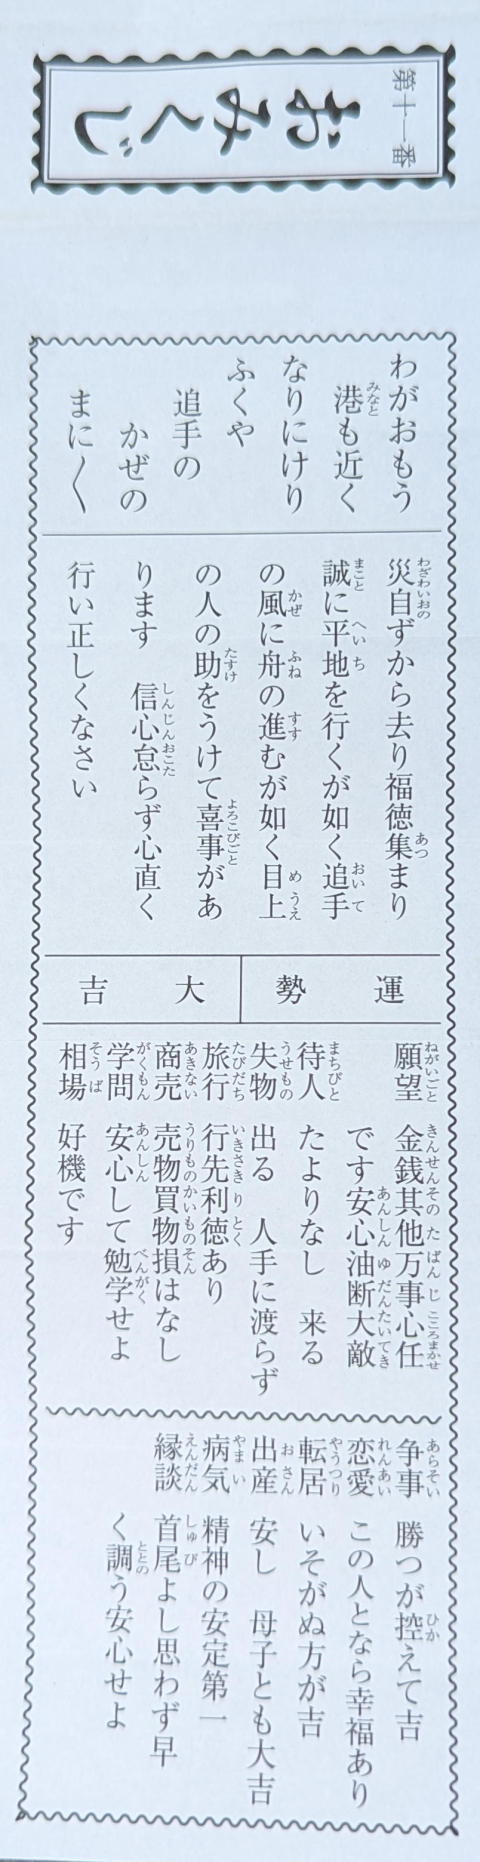 第十一番
おみくじ
わがおもう
港も近く
なりにけり
ふくや
追手の
かぜの
まに〱
災自ずから去り福徳集まり
誠に平地を行くが如く追手
の風に舟の進むが如く目上
の人の助をうけて喜事があ
ります　信心怠らず心直く
行い正しくなさい
運勢　大吉
願望　金銭其他万事心任
です安心油断大敵
待人　たよりなし　来る
失物　出る　人手に渡らず
旅行　行先利徳あり
商売　売物買物損はなし
学問　安心して勉学せよ
相場　好機です
争事　勝つが控えて吉
恋愛　この人となら幸福あり
転居　いそがぬ方が吉
出産　安し　母子とも大吉
病気　精神の安定第一
縁談　首尾よし思わず早
く調う安心せよ